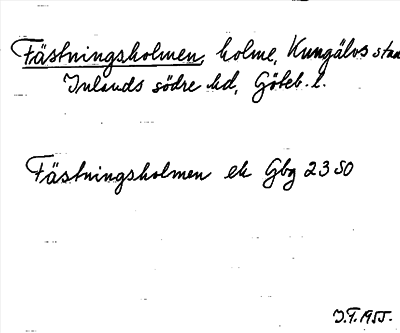 Fästningsholmen, holme, Kungälvs stad
Inlands södre hd, Göteb. l.
Fästningsholmen ek Gbg 23 SO
J.F. 1955.